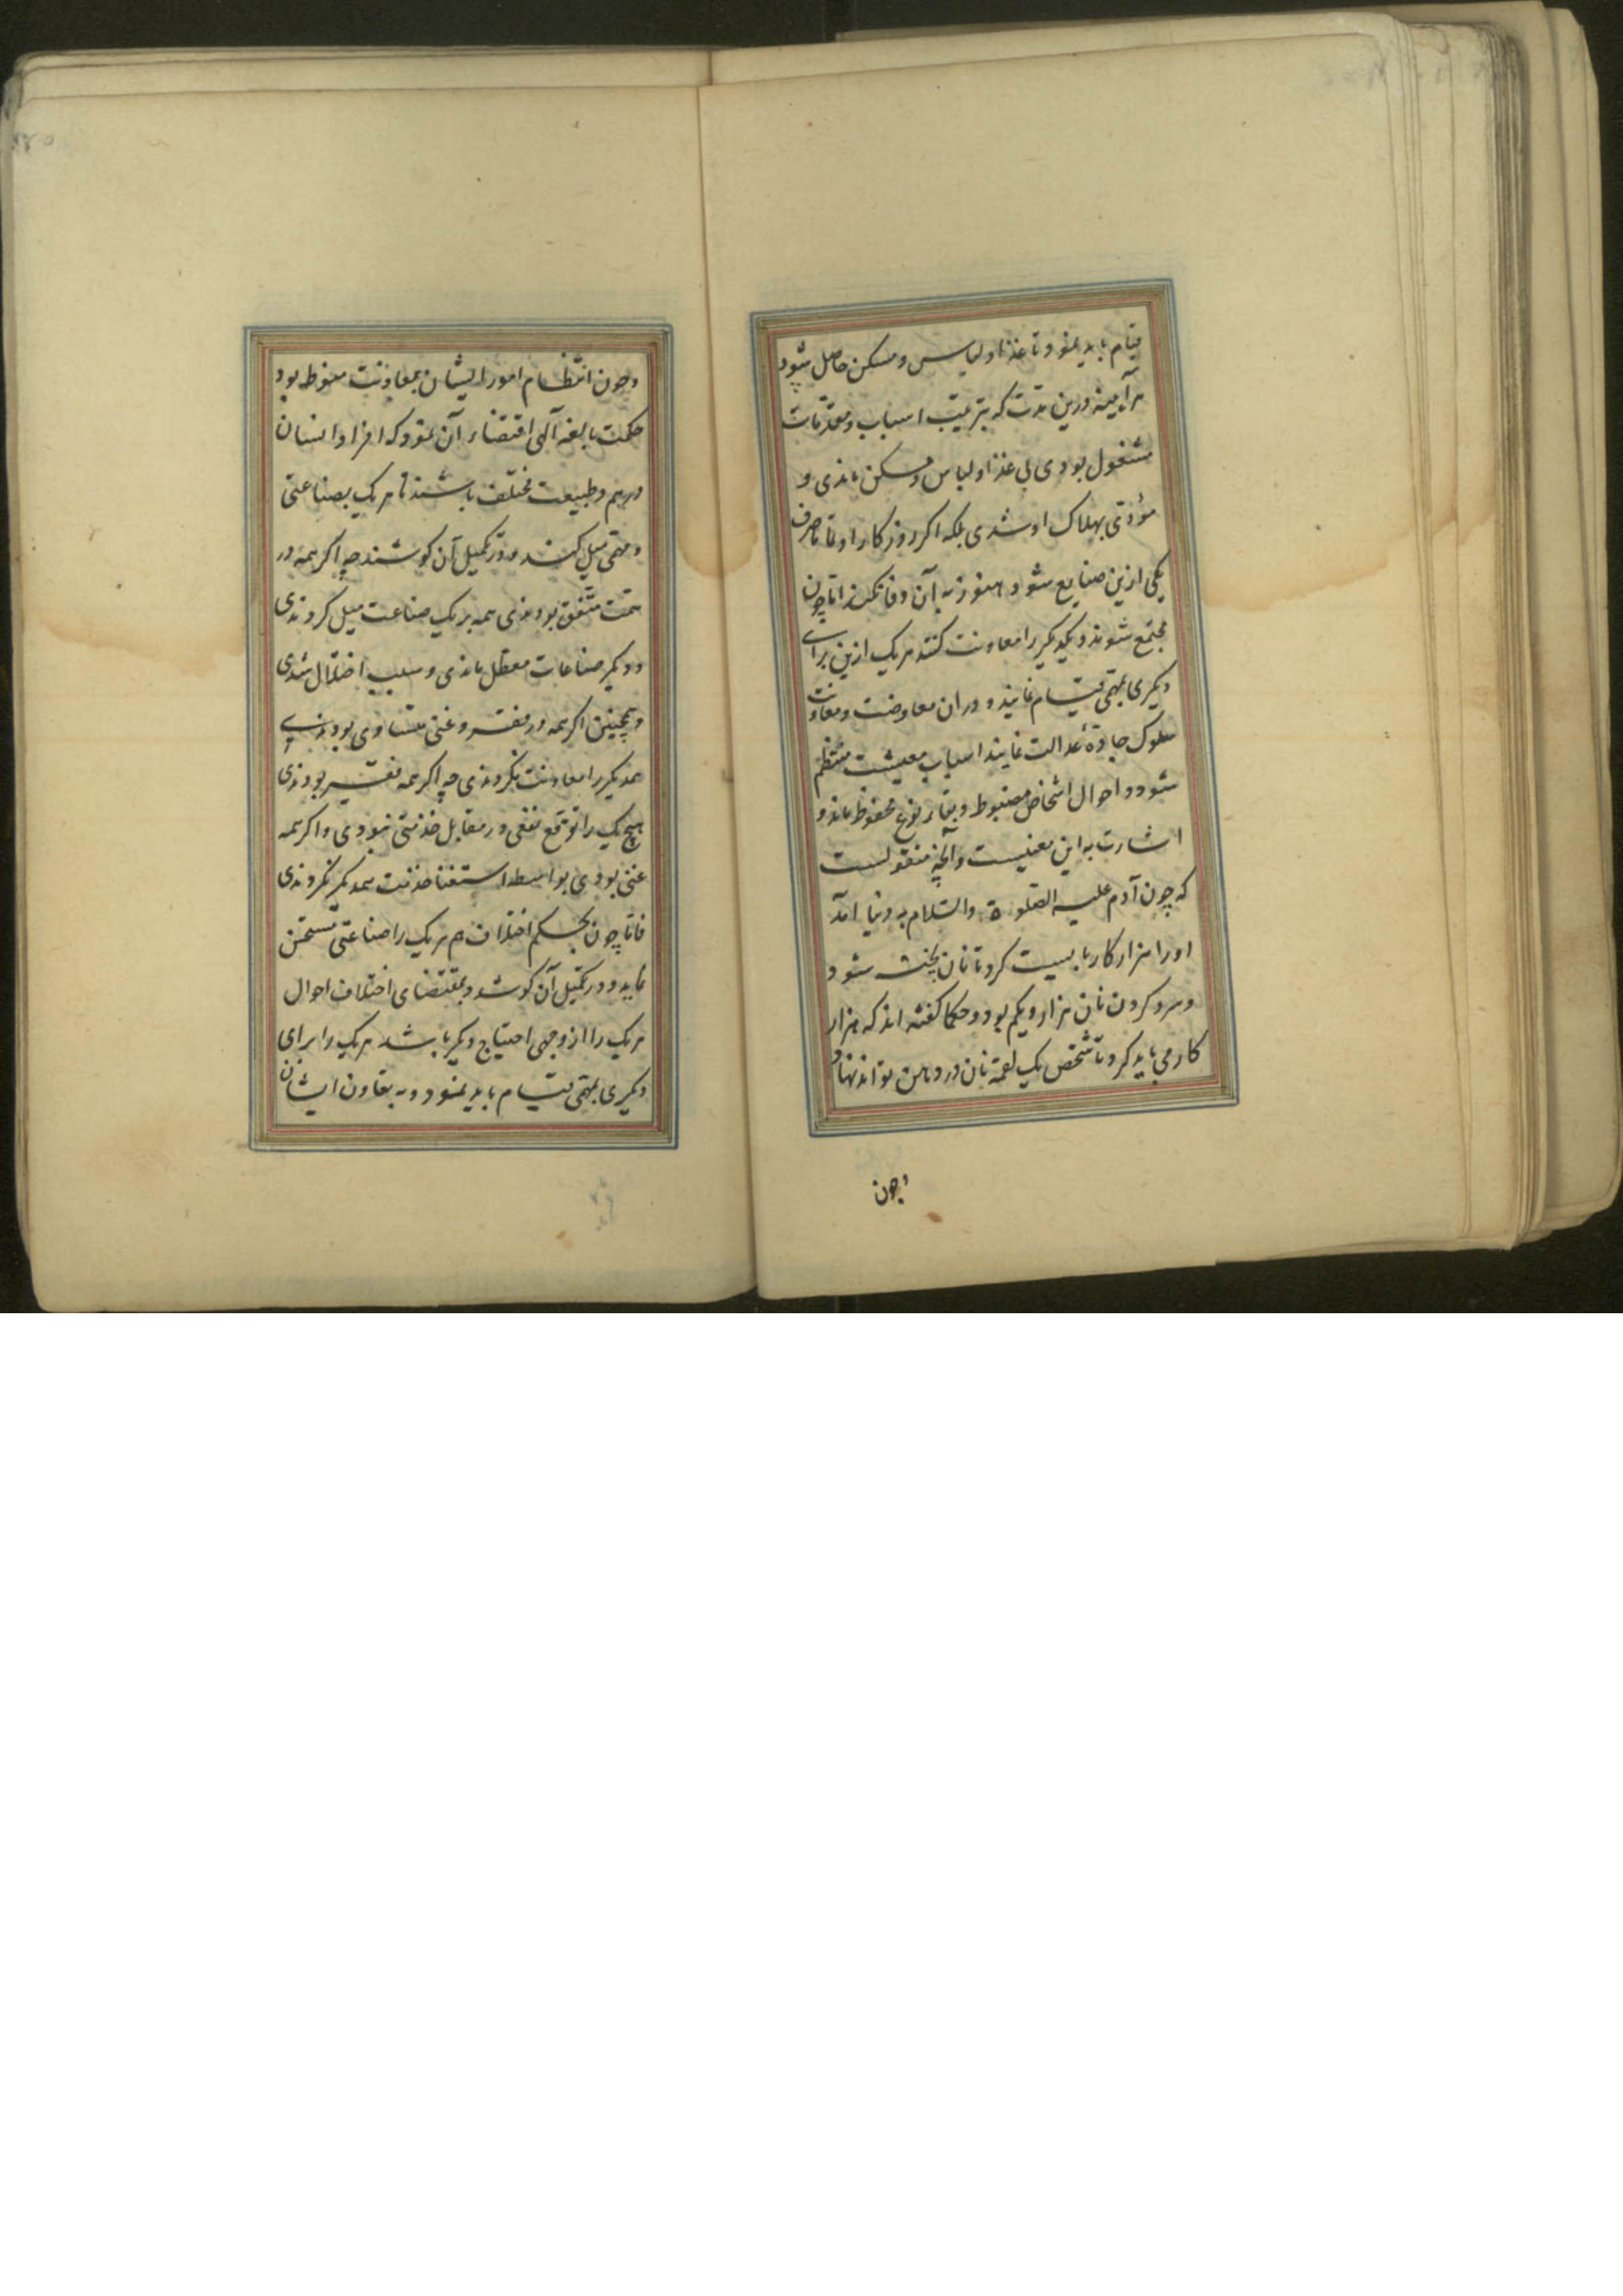 قیام باید نمود تا غذا و لباس و مسکن حاصل شود
هرآیینه درین مدت که بترتیب اسباب و مقدمات
مشغول بودی بی غذا و لباس و مسکن ماندی و
مؤدی بهلاک او شدی بلکه اگر روزگار او تماما صرف
یکی ازین صنایع شود هنوز به آن وفا نکند اما چون
مجتمع شوند و یکدیگر را معاونت کنند هر یک ازین برای
دیگری بمهمی قیام نمایند و دران معاوضت و معاونت
سلوک جادهٔ عدالت نمایند اسباب معیشت منتظم
شود و احوال اشخاص مضبوط و بقاء نوع محفوظ ماند و
اشارت به این معنیست و آنچه منقولست
که چون آدم علیه الصلوة والسلام به دنیا آمد
او را هزار کار بایست کرد تا نان پخته شود
و سرد کردن نان هزار و یکم بود و حکما گفته اند که هزار
کار می باید کرد تا شخص یک لقمه نان در دهن تواند نهاد
وچون
وچون انتظام امور ایشان بمعاونت منوط بود
حکمت بالغه آلهی اقتضاء آن نمود که افراد انسان
در همم و طبیعت مختلف باشند تا هر یک بصناعتی
و مهمی میل کنند و در تکمیل آن کوشند چه اگر همه در
همت متفق بودندی همه بر یک صناعت میل کردندی
و دیگر صناعات معطل ماندی و سبب اختلال شدی
و همچنین اگر همه در فقر و غنی متساوی بودندی
همدیگر را معاونت نکردندی چه اگر همه فقیر بودندی
هیچ یک را توقع نفعی در مقابل خدمتی نبودی و اگر همه
غنی بودی بواسطه استغنا خدمت همدیگر نکردندی
فاما چون بحکم اختلاف همم هر یک را صناعتی مستحسن
نماید و در تکمیل آن کوشد و بمقتضای اختلاف احوال
هر یک را از وجهی احتیاج دیگر باشد هر یک را برای
دیگری بمهمی قیام باید نمود و به تعاون ایشان